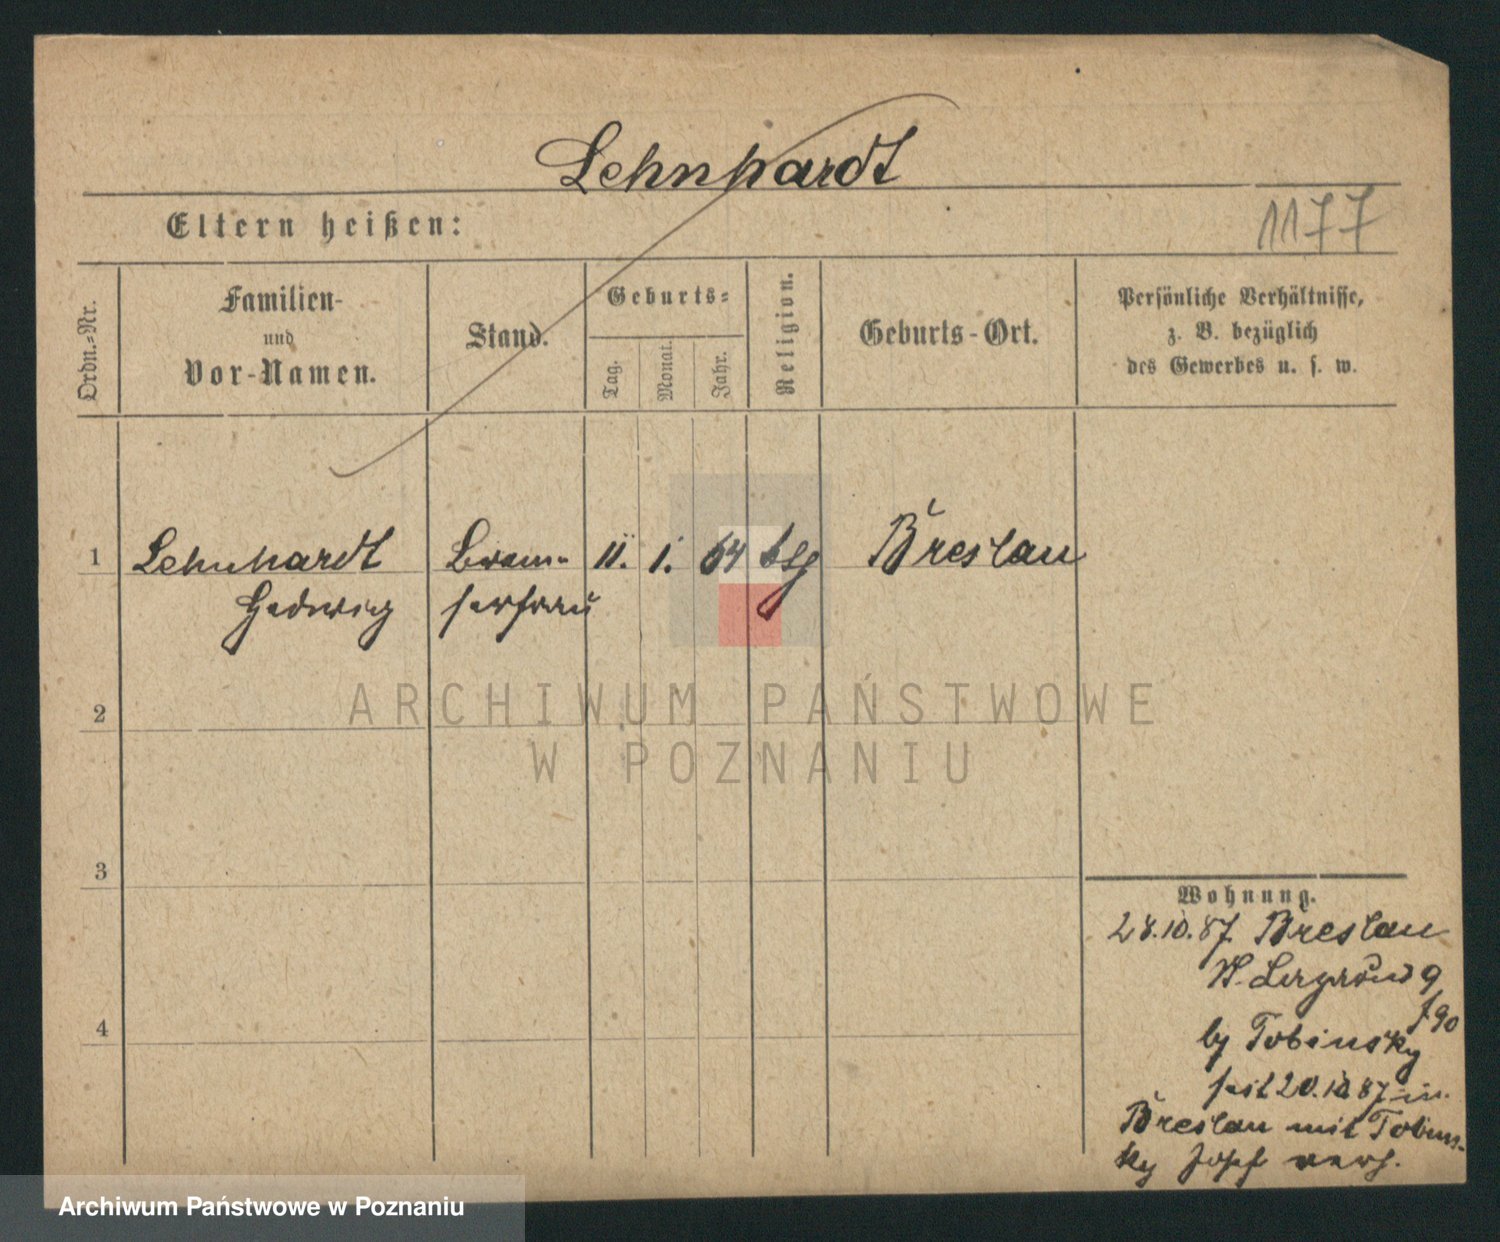 Lehnhardt
Eltern heißen:
1177
Ordn.-Nr.
Familien-
und
Vor-Namen.
Stand.
Geburts-
Tag.
Monat.
Jahr.
Religion.
Geburts-Ort.
Persönliche Verhältnisse,
z. B. bezüglich
des Gewerbes u. s. w.
1 Lehnhardt 11. 1. 64 Breslau
Hedwig
2
ARCHIWUM PAŃSTWOWE
W POZNANIU
3
Wohnung.
28.10.87 Breslau
9
f 90
4
by Tobinsky
seit 20.10.87 in
Breslau mit Tobins-
ky
Archiwum Państwowe w Poznaniu